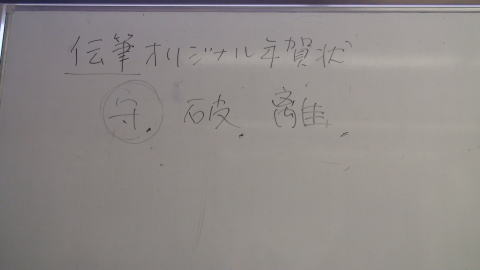 伝筆オリジナル年賀状
守 破 離